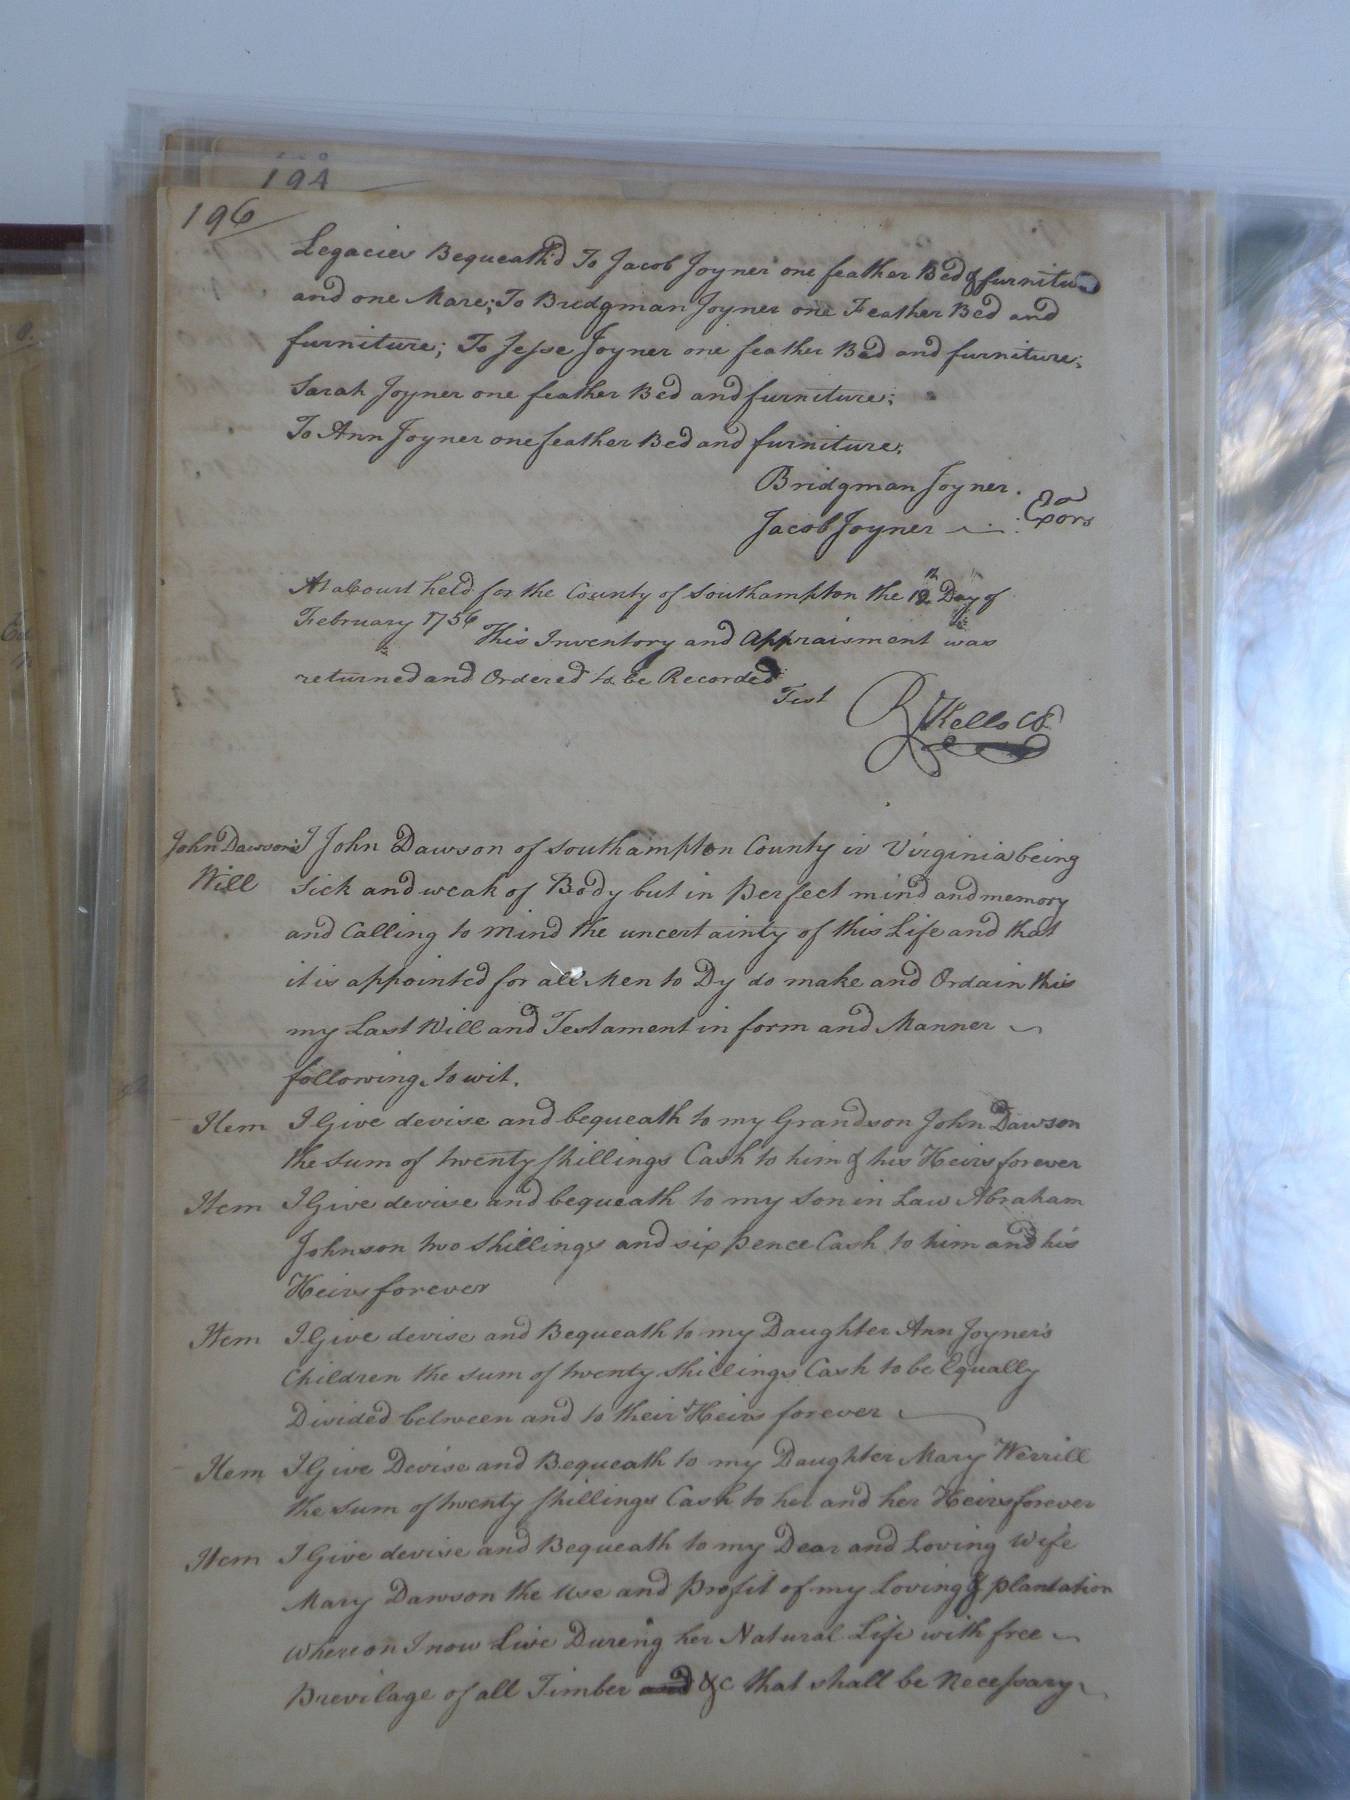 194
196
Legacies Bequeath'd To Jacob Joyner one feather Bed & furniture
and one Mare; To Bridgman Joyner one Feather Bed and
furniture; To Jesse Joyner one feather Bed and furniture;
Sarah Joyner one feather Bed and furniture;
To Ann Joyner one feather Bed and furniture;
Bridgman Joyner.
Jacob Joyner Exors
At a Court held for the County of Southampton the 12th Day of
February 1756
This Inventory and Appraisment was
returned and Ordered to be Recorded
Test
R Kello Cl
John Dawson's I John Dawson of Southampton County in Virginia being
Will Sick and weak of Body but in perfect mind and memory
and Calling to mind the uncertainty of this Life and that
it is appointed for all Men to Dy do make and Ordain this
my Last Will and Testament in form and Manner
following, to wit.
Item I Give devise and bequeath to my Grandson John Dawson
the sum of twenty shillings Cash to him & his Heirs forever
Item I Give devise and bequeath to my son in Law Abraham
Johnson two shillings and six pence Cash to him and his
Heirs forever
Item I Give devise and Bequeath to my Daughter Ann Joyner's
Children the sum of twenty shillings Cash to be Equally
Divided between and to their Heirs forever
Item I Give Devise and Bequeath to my Daughter Mary Werrill
the sum of twenty shillings Cash to her and her Heirs forever
Item I Give devise and Bequeath to my Dear and Loving Wife
Mary Dawson the Use and profit of my Loving & plantation
whereon I now Live Dureing her Natural Life with free
Previlage of all Timber and &c that shall be Necessary